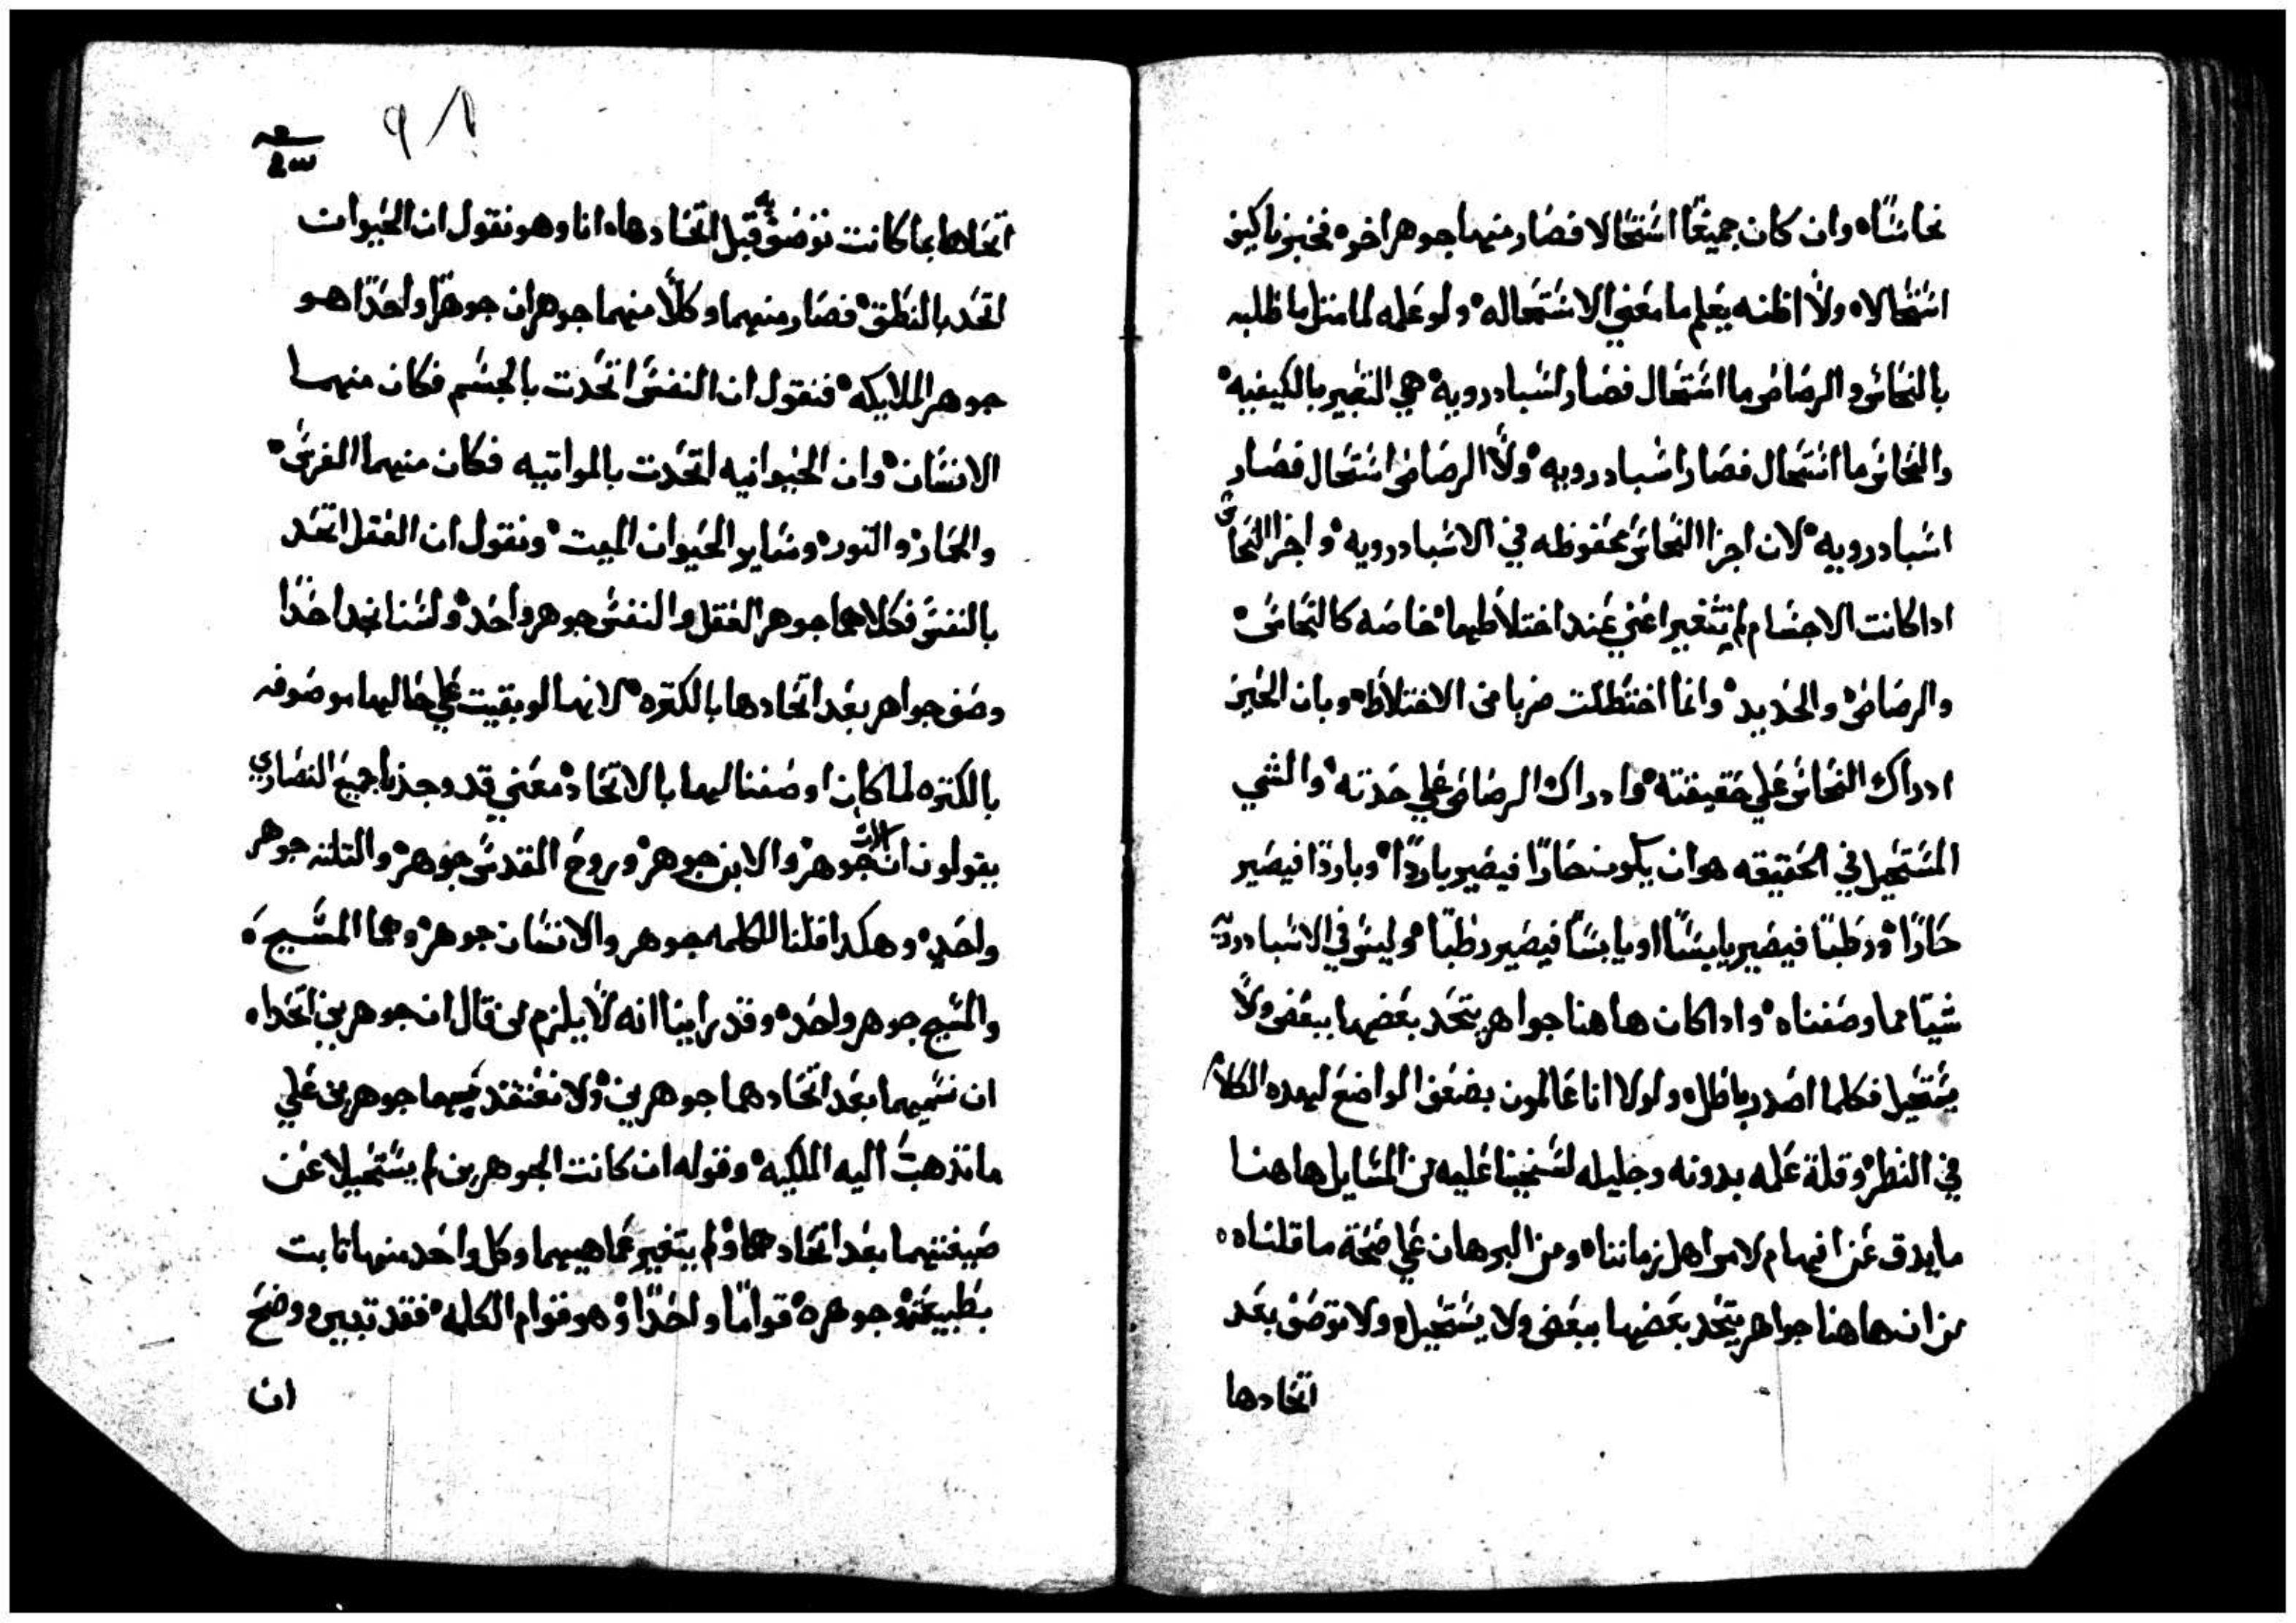 نحاسًا ه وان كان جميعًا استحالا فصار منهما جوهر اخر ه فخبرنا كيف
استحالا ه ولا اظنه يعلم ما معني الاستحاله ه ولو علمه لما مثل باطله
بالنحاس والرصاص ما استحال فصار اسبادرويه ه هي التغير بالكيفيه ه
والنحاس ما استحال فصار اسبادرويه ه ولا الرصاص استحال فصار
اسبادرويه ه لان اجزا النحاس محفوظه في الاسبادرويه ه واجزا النحاس
ادا كانت الاجسام لم تتغير اعني عند اختلاطها ه خاصه كالنحاس ه
والرصاص ه والحديد ه وانما اختطلت ضربا من الاختلاط ه وبان الخبز
ادراك النحاس علي حقيقته ه وادراك الرصاص علي حدته ه والشي
المستحيل في الحقيقه هو ان يكون حارًا فيصير باردًا ه وباردًا فيصير
حارًا ه ورطبًا فيصير يابسًا او يابسًا فيصير رطبًا ه وليس في الاسبادرويه
شيًا مما وصفناه ه وادا كان هاهنا جواهر يتحد بعضها ببعض ولا
يستحيل فكلما اصدر باطل ه ولولا انا عالمون بضعف الواضع لهده الكلام
في النظر ه وقلة علمه بدونه وجليله لسنجينا عليه من المسايل هاهنا
ما يدق عن افهام لامو اهل زماننا ه ومن البرهان علي صحة ما قلناه ه
من ان هاهنا جواهر يتحد بعضها ببعض ولا يستحيل ه ولا توصف بعد
اتحادها
٩٨
اتحادها بما كانت توصف به قبل اتحادها ه انا وهو نقول ان الحيوان
اتحد بالنطق ه فصار منهما وكلًا منهما جوهران جوهرًا واحدًا هو
جوهر الملايكه ه فنقول ان النفس اتحدت بالجسم فكان منهما
الانسان ه وان الحيوانيه اتحدت بالمواتيه فكان منهما الفرس ه
والحمار ه والثور ه وساير الحيوان الميت ه ونقول ان العقل اتحد
بالنفس فكلاهما جوهر العقل والنفس جوهر واحد ه ولسنا نجد احدًا
وصف جواهر بعد اتحادها بالكتره ه لانها لو بقيت علي حالها موصوفه
بالكتره لما كان اوصفنا لها بالاتحاد ه معني قد وجدنا جميع النصاري
يقولون ان الاب جوهر ه والابن جوهر ه وروح القدس جوهر ه والتلته جوهر
واحد ه وهكدا قلنا الكلمه جوهر والانسان جوهر ه وهما المسيح ه
والمسيح جوهر واحد ه وقد راينا انه لا يلزم من قال ان جوهرين اتحدا ه
ان نسميهما بعد اتحادهما جوهرين ه ولا نعتقد فيهما جوهرين علي
ما تدهبت اليه الملكيه ه وقوله ان كانت الجوهرين لم يستحيلا عن
ضبيعتهما بعد اتحادهما ه ولم يتغير عما هيهما وكل واحد منهما تابت
بطبيعته وجوهره ه قوامًا واحدًا ه وهو قوام الكلمه ه فقد تبين ووضح
ان